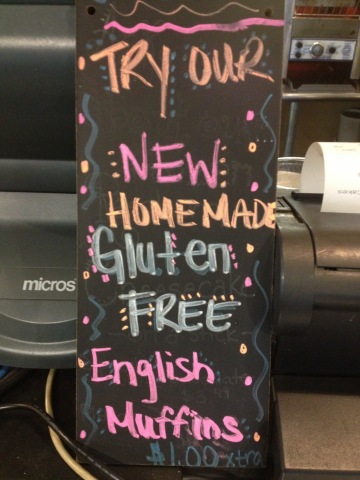 TRY OUR
NEW
HOMEMADE
Gluten
FREE
English
Muffins
$1.00 xtra
micros